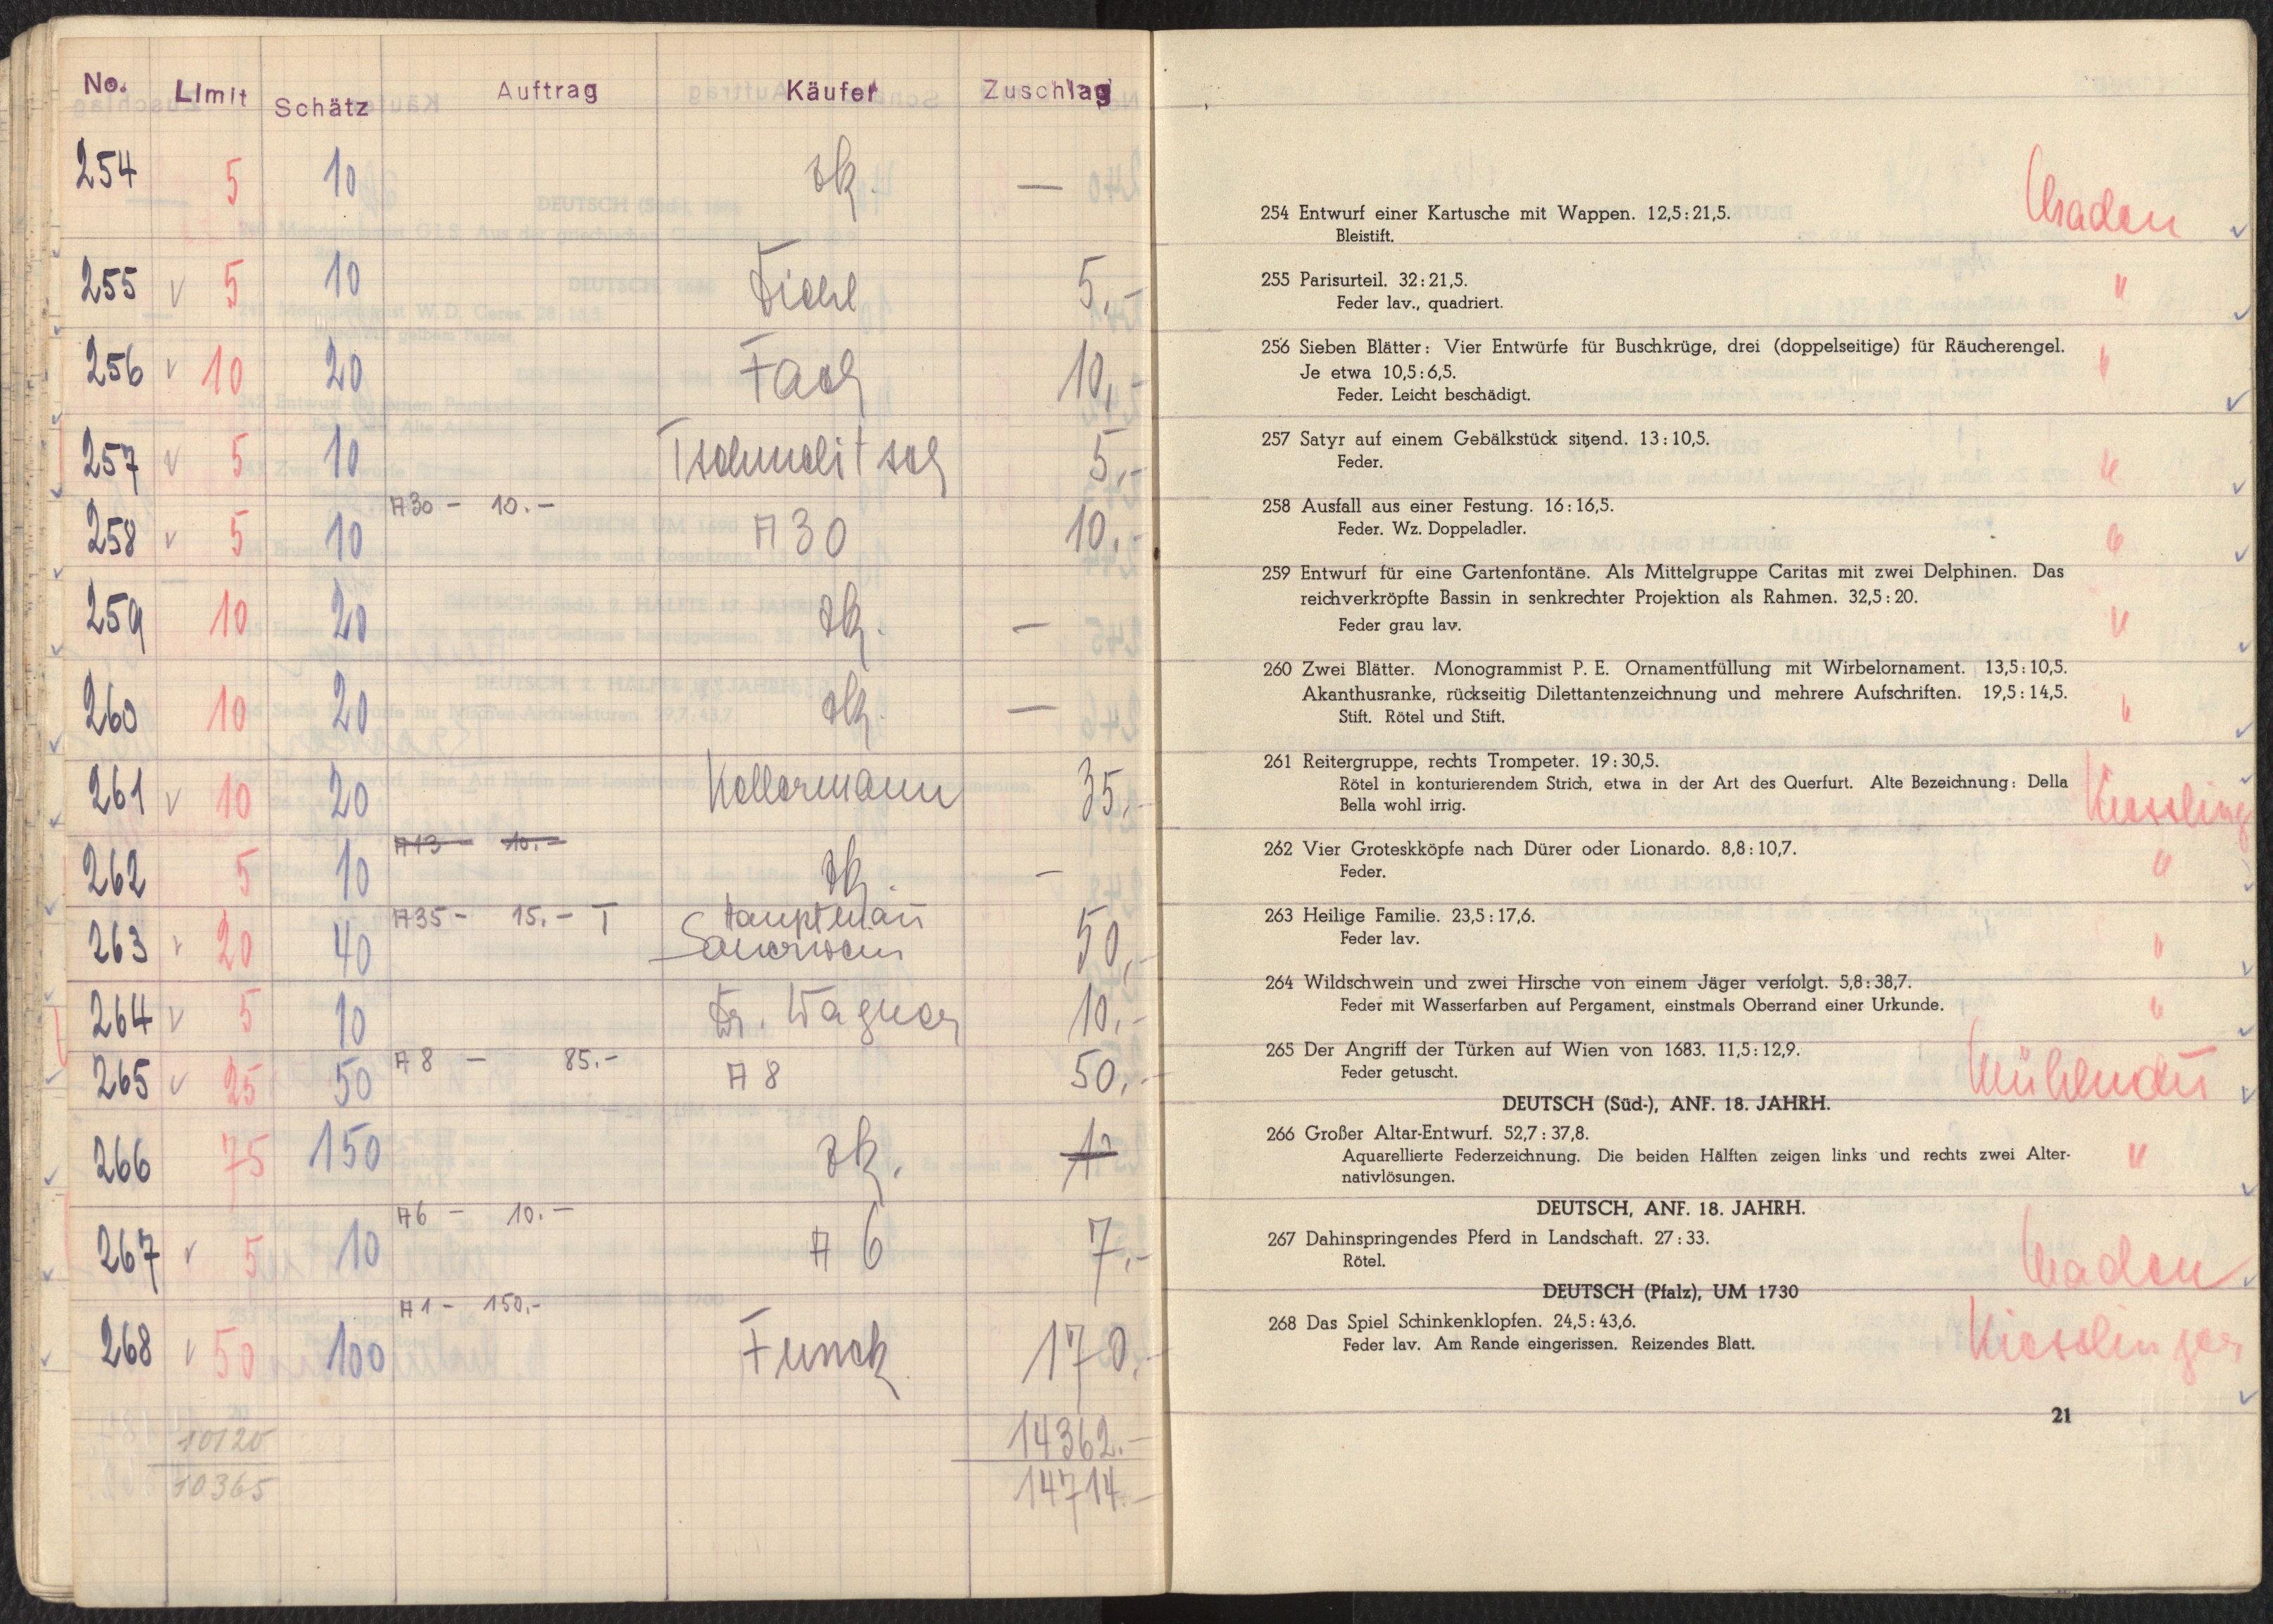 No. Limit Schätz Auftrag Käufer Zuschlag
254 5 10 zk. —
255 v 5 10 Diehl 5,-
256 v 10 20 Fach 10,-
257 v 5 10 5,-
A30 - 10.-
258 v 5 10 A 30 10,-
259 10 20 zk. —
260 10 20 zk. —
261 v 10 20 Kellermann 35,-
A13 - 10.-
262 5 10 zk. —
A35 - 15.- T Hauptmañ
263 v 20 40 Sauerwein 50,-
264 v 5 10 Dr. Wagner 10,-
A8 - 85.-
265 v 25 50 A 8 50,-
266 75 150 zk.
A6 - 10.-
267 v 5 10 A 6 7,-
A1 - 150.-
268 v 50 100 Funck 170,-
10120 14362.-
10365 14714.-
254 Entwurf einer Kartusche mit Wappen. 12,5 : 21,5.
Bleistift.
255 Parisurteil. 32 : 21,5. "
Feder lav., quadriert.
256 Sieben Blätter: Vier Entwürfe für Buschkrüge, drei (doppelseitige) für Räucherengel. "
Je etwa 10,5 : 6,5.
Feder. Leicht beschädigt.
257 Satyr auf einem Gebälkstück sitzend. 13 : 10,5.
Feder. "
258 Ausfall aus einer Festung. 16 : 16,5.
Feder. Wz. Doppeladler. "
259 Entwurf für eine Gartenfontäne. Als Mittelgruppe Caritas mit zwei Delphinen. Das
reichverkröpfte Bassin in senkrechter Projektion als Rahmen. 32,5 : 20.
Feder grau lav. "
260 Zwei Blätter. Monogrammist P. E. Ornamentfüllung mit Wirbelornament. 13,5 : 10,5.
Akanthusranke, rückseitig Dilettantenzeichnung und mehrere Aufschriften. 19,5 : 14,5.
Stift. Rötel und Stift. "
261 Reitergruppe, rechts Trompeter. 19 : 30,5.
Rötel in konturierendem Strich, etwa in der Art des Querfurt. Alte Bezeichnung: Della
Bella wohl irrig. Kiessling
262 Vier Groteskköpfe nach Dürer oder Lionardo. 8,8 : 10,7.
Feder. "
263 Heilige Familie. 23,5 : 17,6.
Feder lav. "
264 Wildschwein und zwei Hirsche von einem Jäger verfolgt. 5,8 : 38,7.
Feder mit Wasserfarben auf Pergament, einstmals Oberrand einer Urkunde. "
265 Der Angriff der Türken auf Wien von 1683. 11,5 : 12,9.
Feder getuscht. Mühlmañ
DEUTSCH (Süd-), ANF. 18. JAHRH.
266 Großer Altar-Entwurf. 52,7 : 37,8.
Aquarellierte Federzeichnung. Die beiden Hälften zeigen links und rechts zwei Alter- "
nativlösungen.
DEUTSCH, ANF. 18. JAHRH.
267 Dahinspringendes Pferd in Landschaft. 27 : 33.
Rötel.
DEUTSCH (Pfalz), UM 1730
268 Das Spiel Schinkenklopfen. 24,5 : 43,6.
Feder lav. Am Rande eingerissen. Reizendes Blatt. Kiesslinger
21